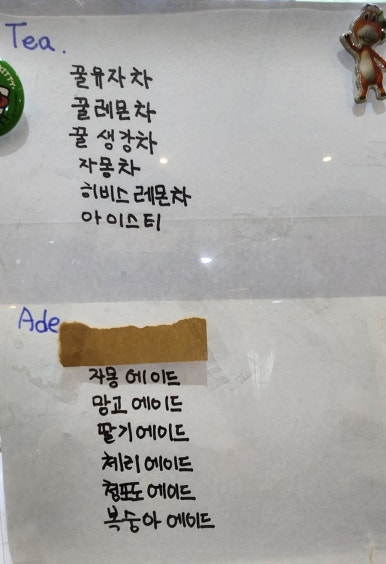 Tea.
꿀유자차
꿀레몬차
꿀 생강차
자몽차
히비스레몬차
아이스티
Ade
자몽 에이드
망고 에이드
딸기 에이드
체리 에이드
청포도 에이드
복숭아 에이드